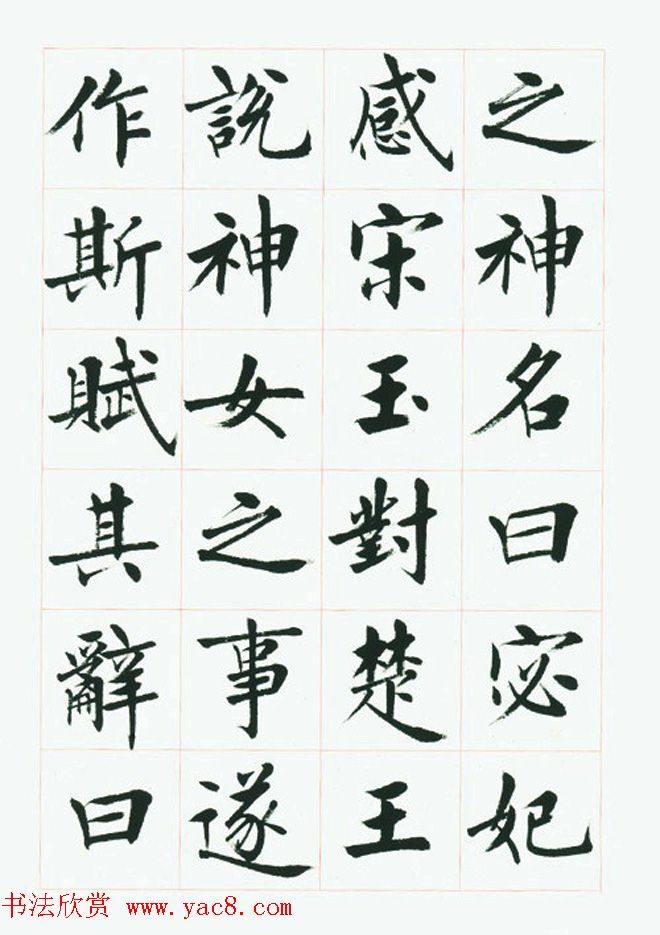 之神名曰宓妃
感宋玉對楚王
說神女之事遂
作斯賦其辭曰
书法欣赏 www.yac8.com